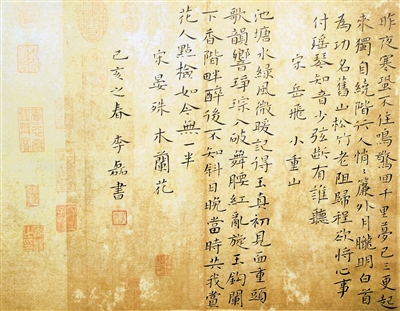 昨夜寒蛩不住鳴驚回千里夢已三更起
來獨自繞階行人悄〻簾外月朧明白首
為功名舊山松竹老阻歸程欲將心事
付瑤琴知音少弦斷有誰聽
宋岳飛 小重山
池塘水綠風微暖記得玉真初見面重頭
歌韻響琤琮入破舞腰紅亂旋玉鉤闌
下香階畔醉後不知斜日晚當時共我賞
花人點檢如今無一半
宋晏殊 木蘭花
己亥之春 李磊書